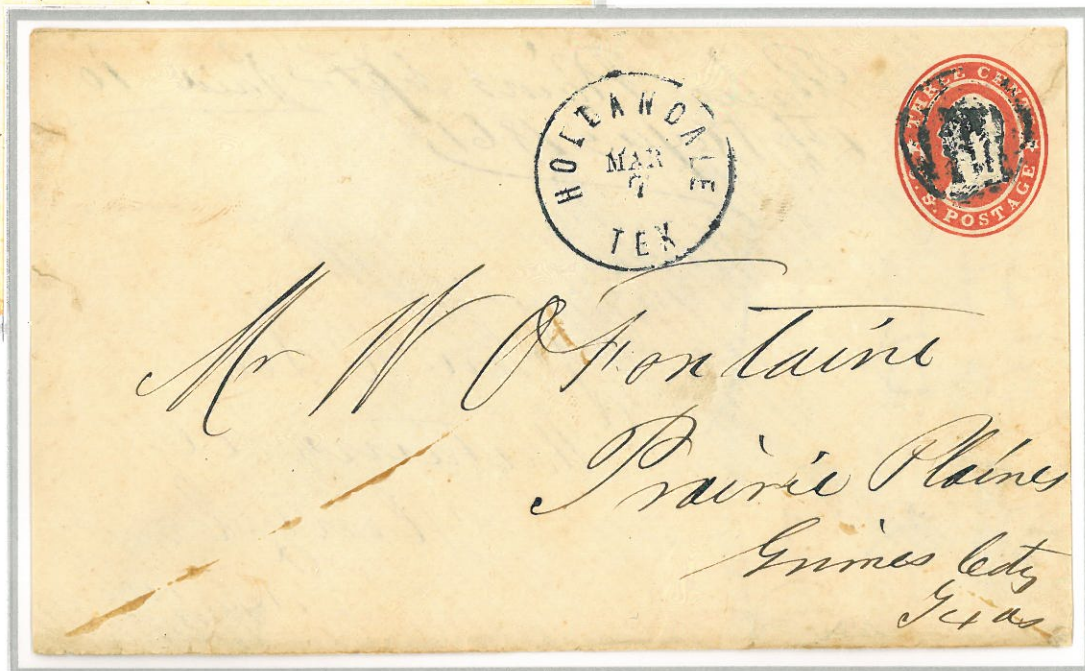 HOLLANDALE
MAR
7
TEX
THREE CENTS
U.S. POSTAGE
Mr W O Fontaine
Prairie Plaines
Grimes Cty
Texas